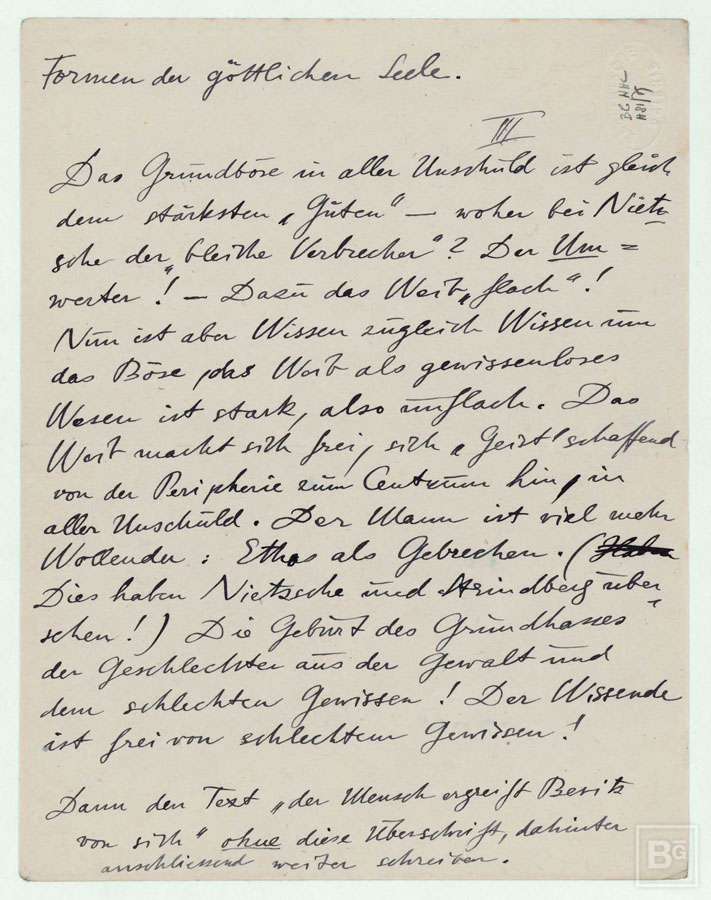 Formen der göttlichen Seele.
BG HHC
III
Das Grundböse in aller Unschuld ist gleich
dem stärksten „Guten“ — woher bei Nietz-
sche der „bleiche Verbrecher“? Der Um=
werter! — Dazu das Weib „flach“!
Nun ist aber Wissen zugleich Wissen um
das Böse, das Weib als gewissenloses
Wesen ist stark, also unflach. Das
Weib macht sich frei, sich „Geist“ schaffend
von der Peripherie zum Centrum hin, in
aller Unschuld. Der Mann ist viel mehr
Wollender: Ethos als Gebrechen. (
Dies haben Nietzsche und Strindberg über
sehen!) Die Geburt des Grundhasses
der Geschlechter aus der Gewalt und
dem schlechten Gewissen! Der Wissende
ist frei von schlechtem Gewissen!
Dann den Text „der Mensch ergreift Besitz
von sich“ ohne diese Überschrift, dahinter
anschliessend weiter schreiben.
BG